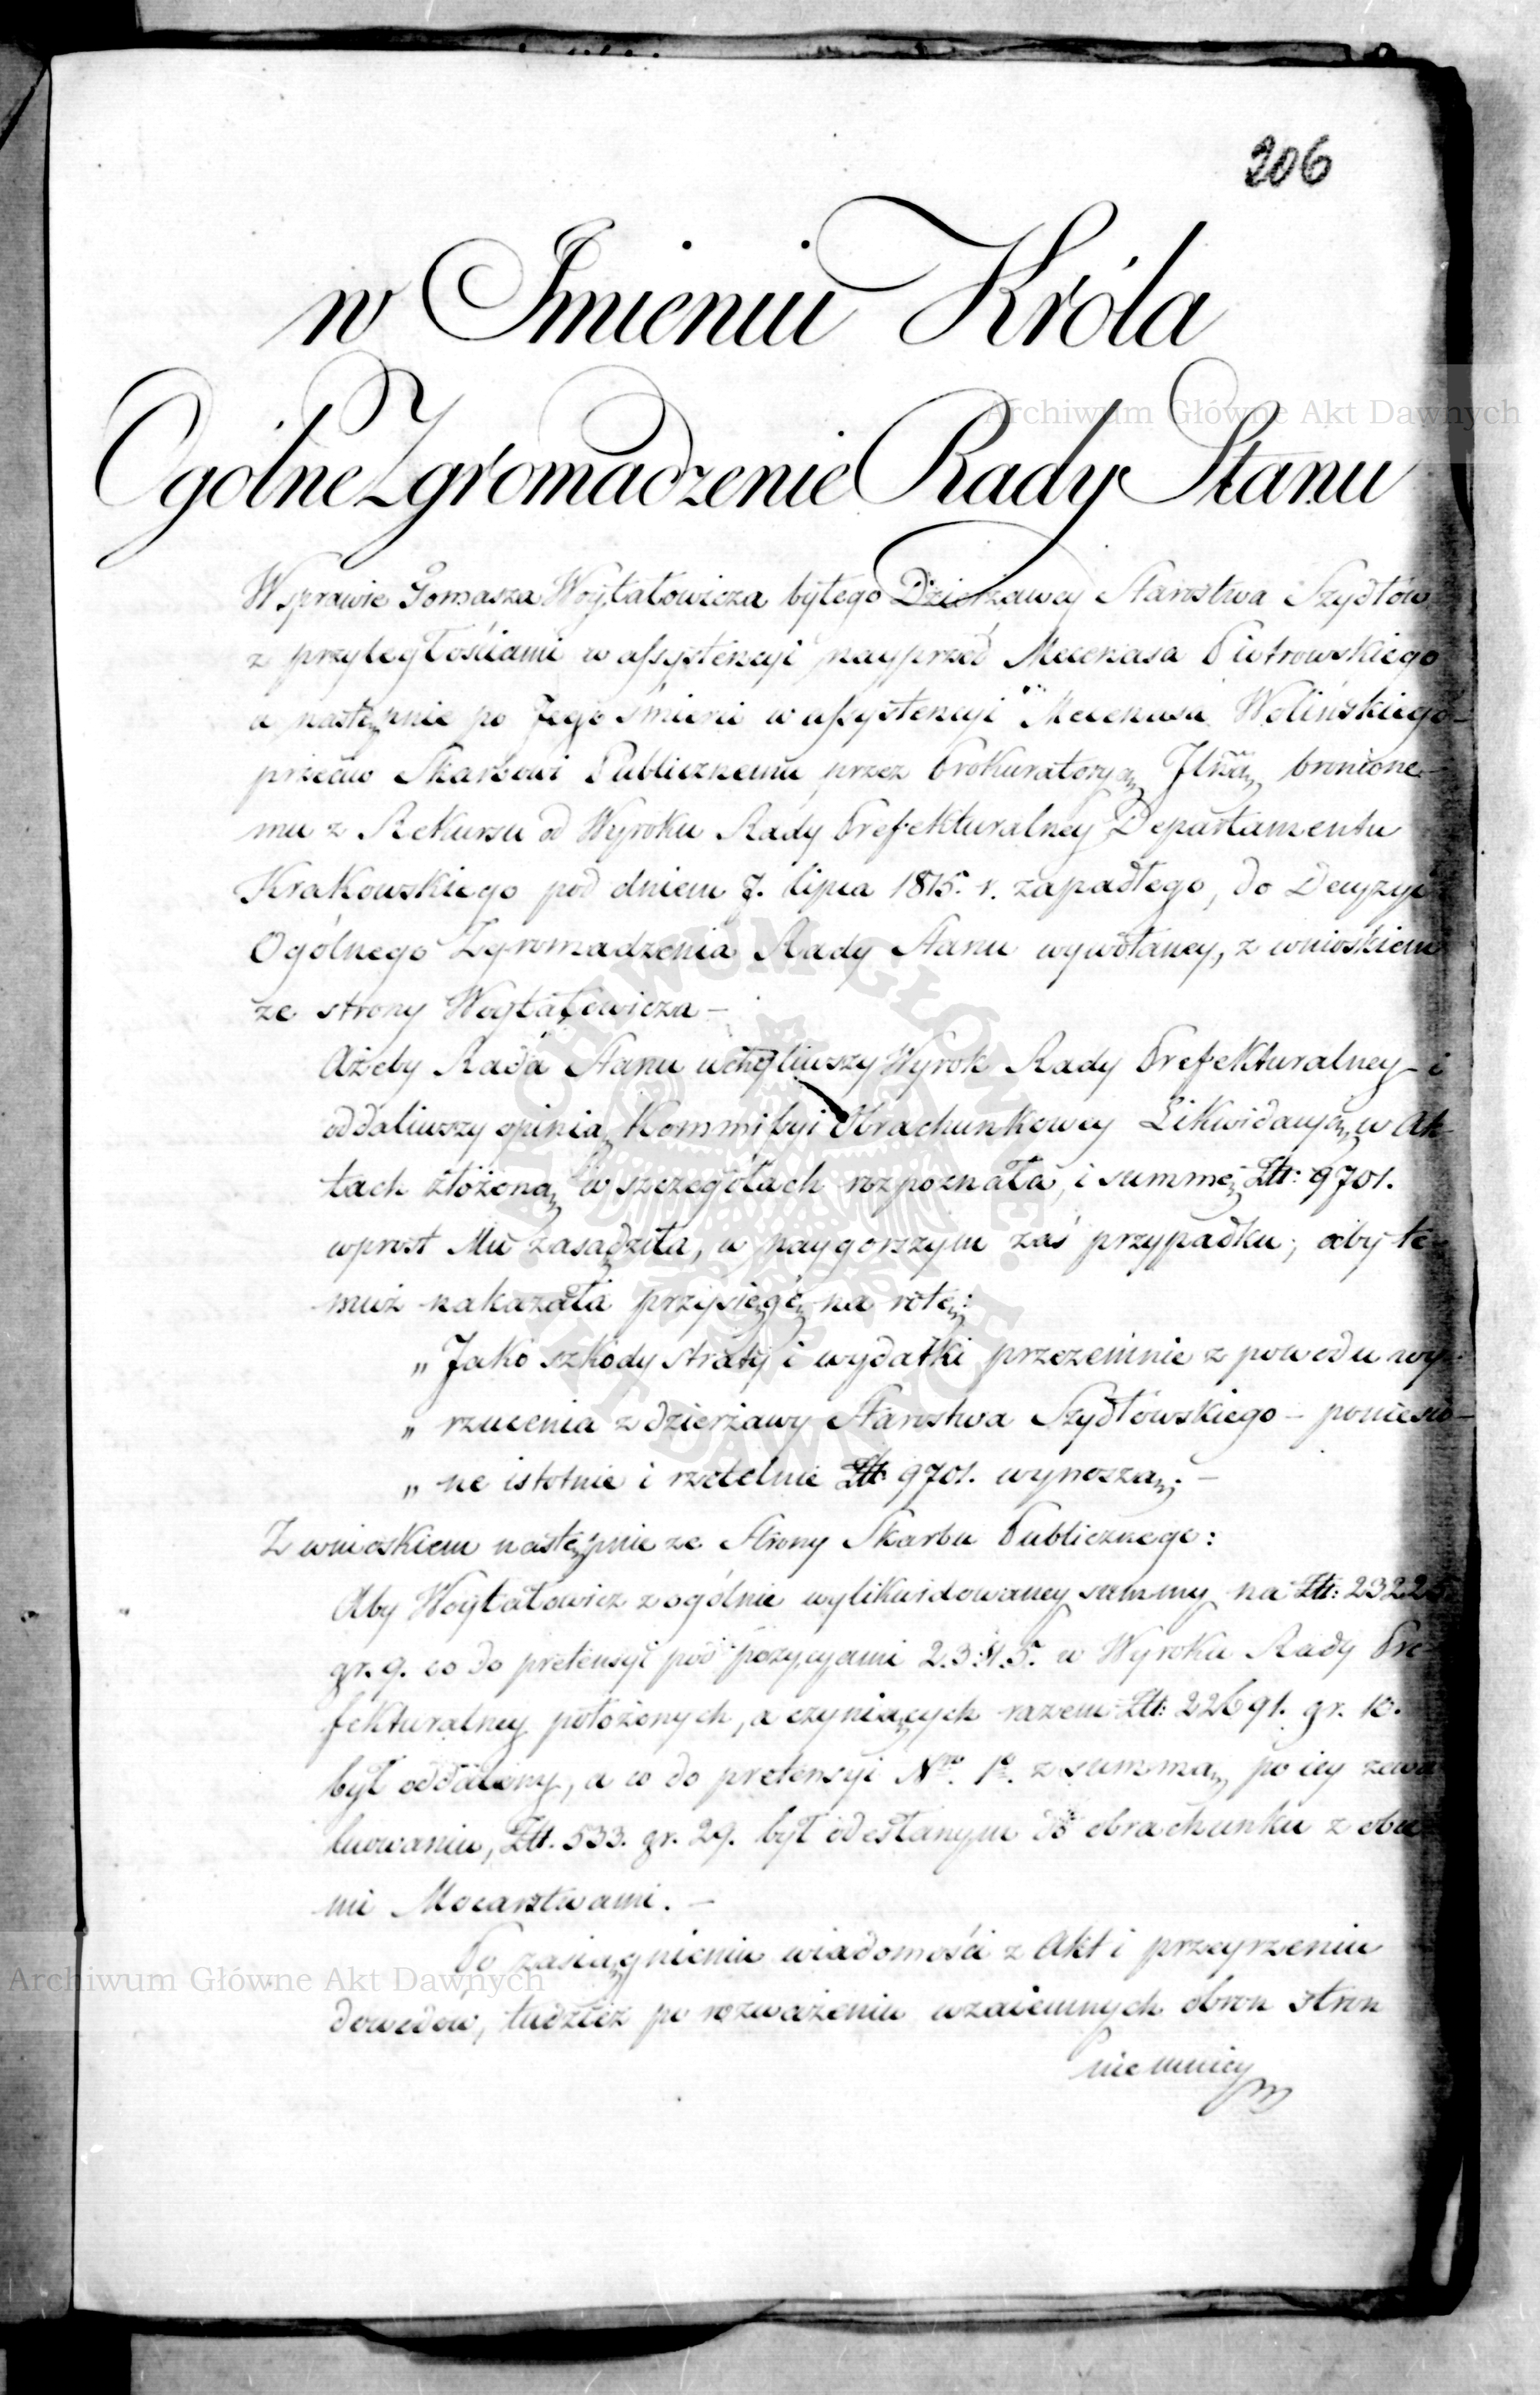 206
w Imieniu Króla
Ogólne Zgromadzenie Rady Stanu
W sprawie Tomasza Woytałowicza byłego Dzierżawcy Starostwa Szydłów
z przyległościami w assystencyi nayprzód Mecenasa Piotrowskiego
a następnie po Jego śmierci w assystencyi Mecenasa Wolińskiego –
przeciw Skarbowi Publicznemu przez Prokuratoryą Jlną bronione-
mu z Rekursu od Wyroku Rady Prefekturalney Departamentu
Krakowskiego pod dniem 7. lipca 1815. r. zapadłego, do Decyzyi
Ogólnego Zgromadzenia Rady Stanu wywołaney, z wnioskiem
ze strony Woytałowicza –
Ażeby Rada Stanu uchyliwszy Wyrok Rady Prefekturalney i
oddaliwszy opinią Kommissyi Obrachunkowey Likwidacyą w Ak-
tach złożoną w szczegółach rozpoznała, i summę Złt: 9701.
wprost Mu zasądziła, w naygorszym zaś przypadku, aby te-
muż nakazała przysięgę na rotę:
„ Jako szkody straty i wydatki przezemnie z powodu wy-
„ rzucenia z dzierżawy Starostwa Szydłowskiego – poniesio-
„ ne istotnie i rzetelnie Złt 9701. wynoszą; –
Z wnioskiem następnie ze Strony Skarbu Publicznego:
Aby Woytałowicz z ogólnie wylikwidowaney summy na Złt: 23225
gr. 9. co do pretensyi pod pozycyami 2. 3. 4. 5. w Wyroku Rady Pre-
fekturalney położonych, a czyniących razem Złt: 22691. gr. 10.
był oddalony, a co do pretensyi Nro. 1o. z summą po iey zewa-
luowaniu, Złt. 533. gr. 29. był odesłanym do obrachunku z obce-
mi Mocarstwami. –
Po zasiągnieniu wiadomości z Akt i przeyrzeniu
dowodów, tudzież po rozważeniu wzaiemnych obron stron
niemniey
Archiwum Główne Akt Dawnych
Archiwum Główne Akt Dawnych
ARCHIWUM GŁÓWNE AKT DAWNYCH